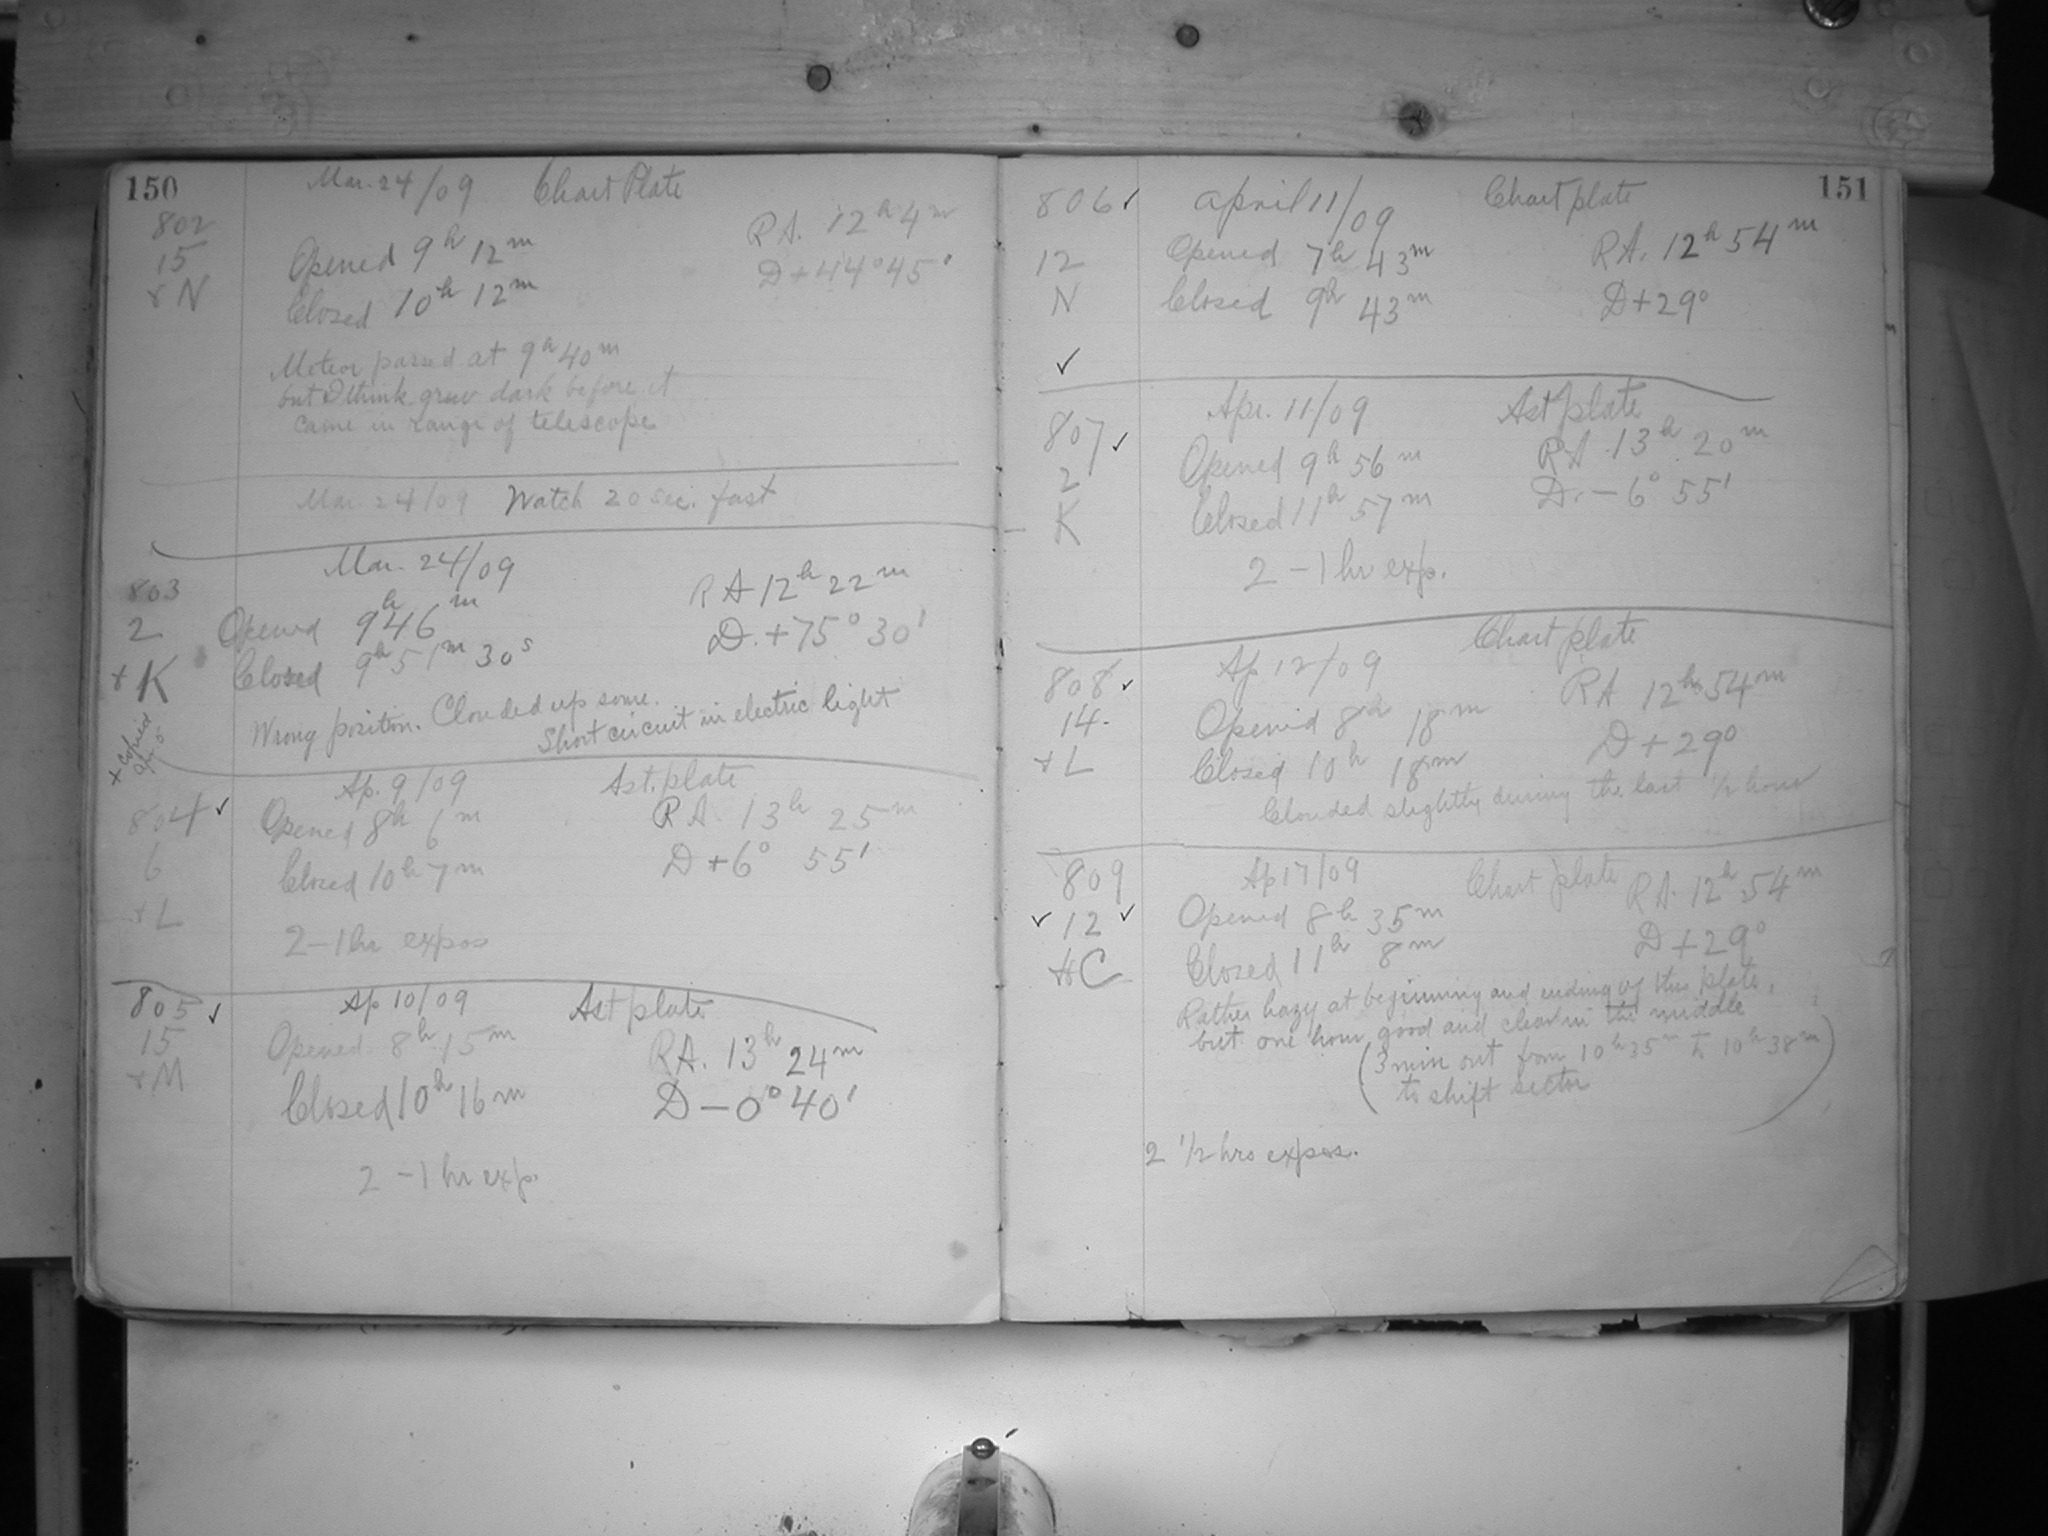 150
Mar. 24/09 Chart Plate
802
15
x N
Opened 9h 12m
Closed 10h 12m
RA. 12h 4m
D + 44° 45'
Meteor passed at 9h 40m
but I think grew dark before it
came in range of telescope
Mar. 24/09 Watch 20 sec. fast
Mar. 24/09
803
2
x K
Opened 9h 46m
Closed 9h 51m 30s
RA 12h 22m
D. +75° 30'
Wrong position. Clouded up some.
Short circuit in electric light
x copied
Ap. 9/09 Ast. plate
804 ✓
6
x L
Opened 8h 6m
Closed 10h 7m
RA. 13h 25m
D +6° 55'
2-1 hr expos
Ap 10/09 Ast plate
805 ✓
15
x M
Opened 8h 15m
Closed 10h 16m
RA. 13h 24m
D - 0° 40'
2 - 1 hr exp.
151
806 ✓
12
N
✓
April 11/09 Chart plate
Opened 7h 43m
Closed 9h 43m
RA. 12h 54m
D + 29°
Apr. 11/09 Ast plate
807 ✓
2
K
Opened 9h 56m
Closed 11h 57m
RA 13h 20m
D. - 6° 55'
2 - 1 hr exp.
Chart plate
Ap 12/09
808 ✓
14.
x L
Opened 8h 18m
Closed 10h 18m
RA 12h 54m
D + 29°
Clouded slightly during the last 1/2 hour
809
✓ 12 ✓
C
Ap 17/09 Chart plate
Opened 8h 35m
Closed 11h 8m
RA. 12h 54m
D + 29°
Rather hazy at beginning and ending of this plate,
but one hour good and clear in the middle
(3 min out from 10h 35m to 10h 38m
to shift sector)
2 1/2 hrs expos.